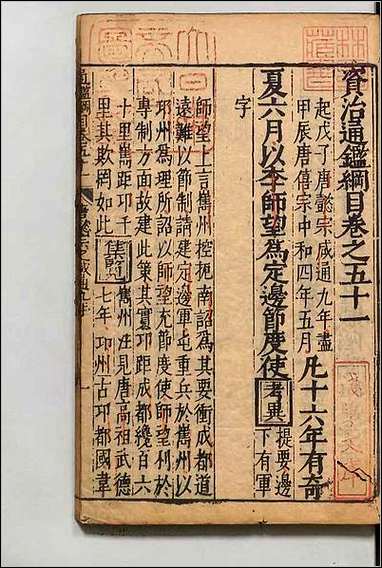 資治通鑑綱目卷之五十一
起戊子唐懿宗咸通九年盡
甲辰唐僖宗中和四年五月
凡十六年有奇
夏六月以李師望為定邊節度使
考異
提要邊
下有軍
字
師望上言巂州控扼南詔為其要衝成都道
遠難以節制請建定邊軍屯重兵於巂州以
邛州為理所詔以師望充節度使師望利於
專制方面故建此策其實邛距成都纔百六
十里巂距邛千
里其欺罔如此
集覽
巂州注見唐高祖武德
七年
邛州古邛都國韋